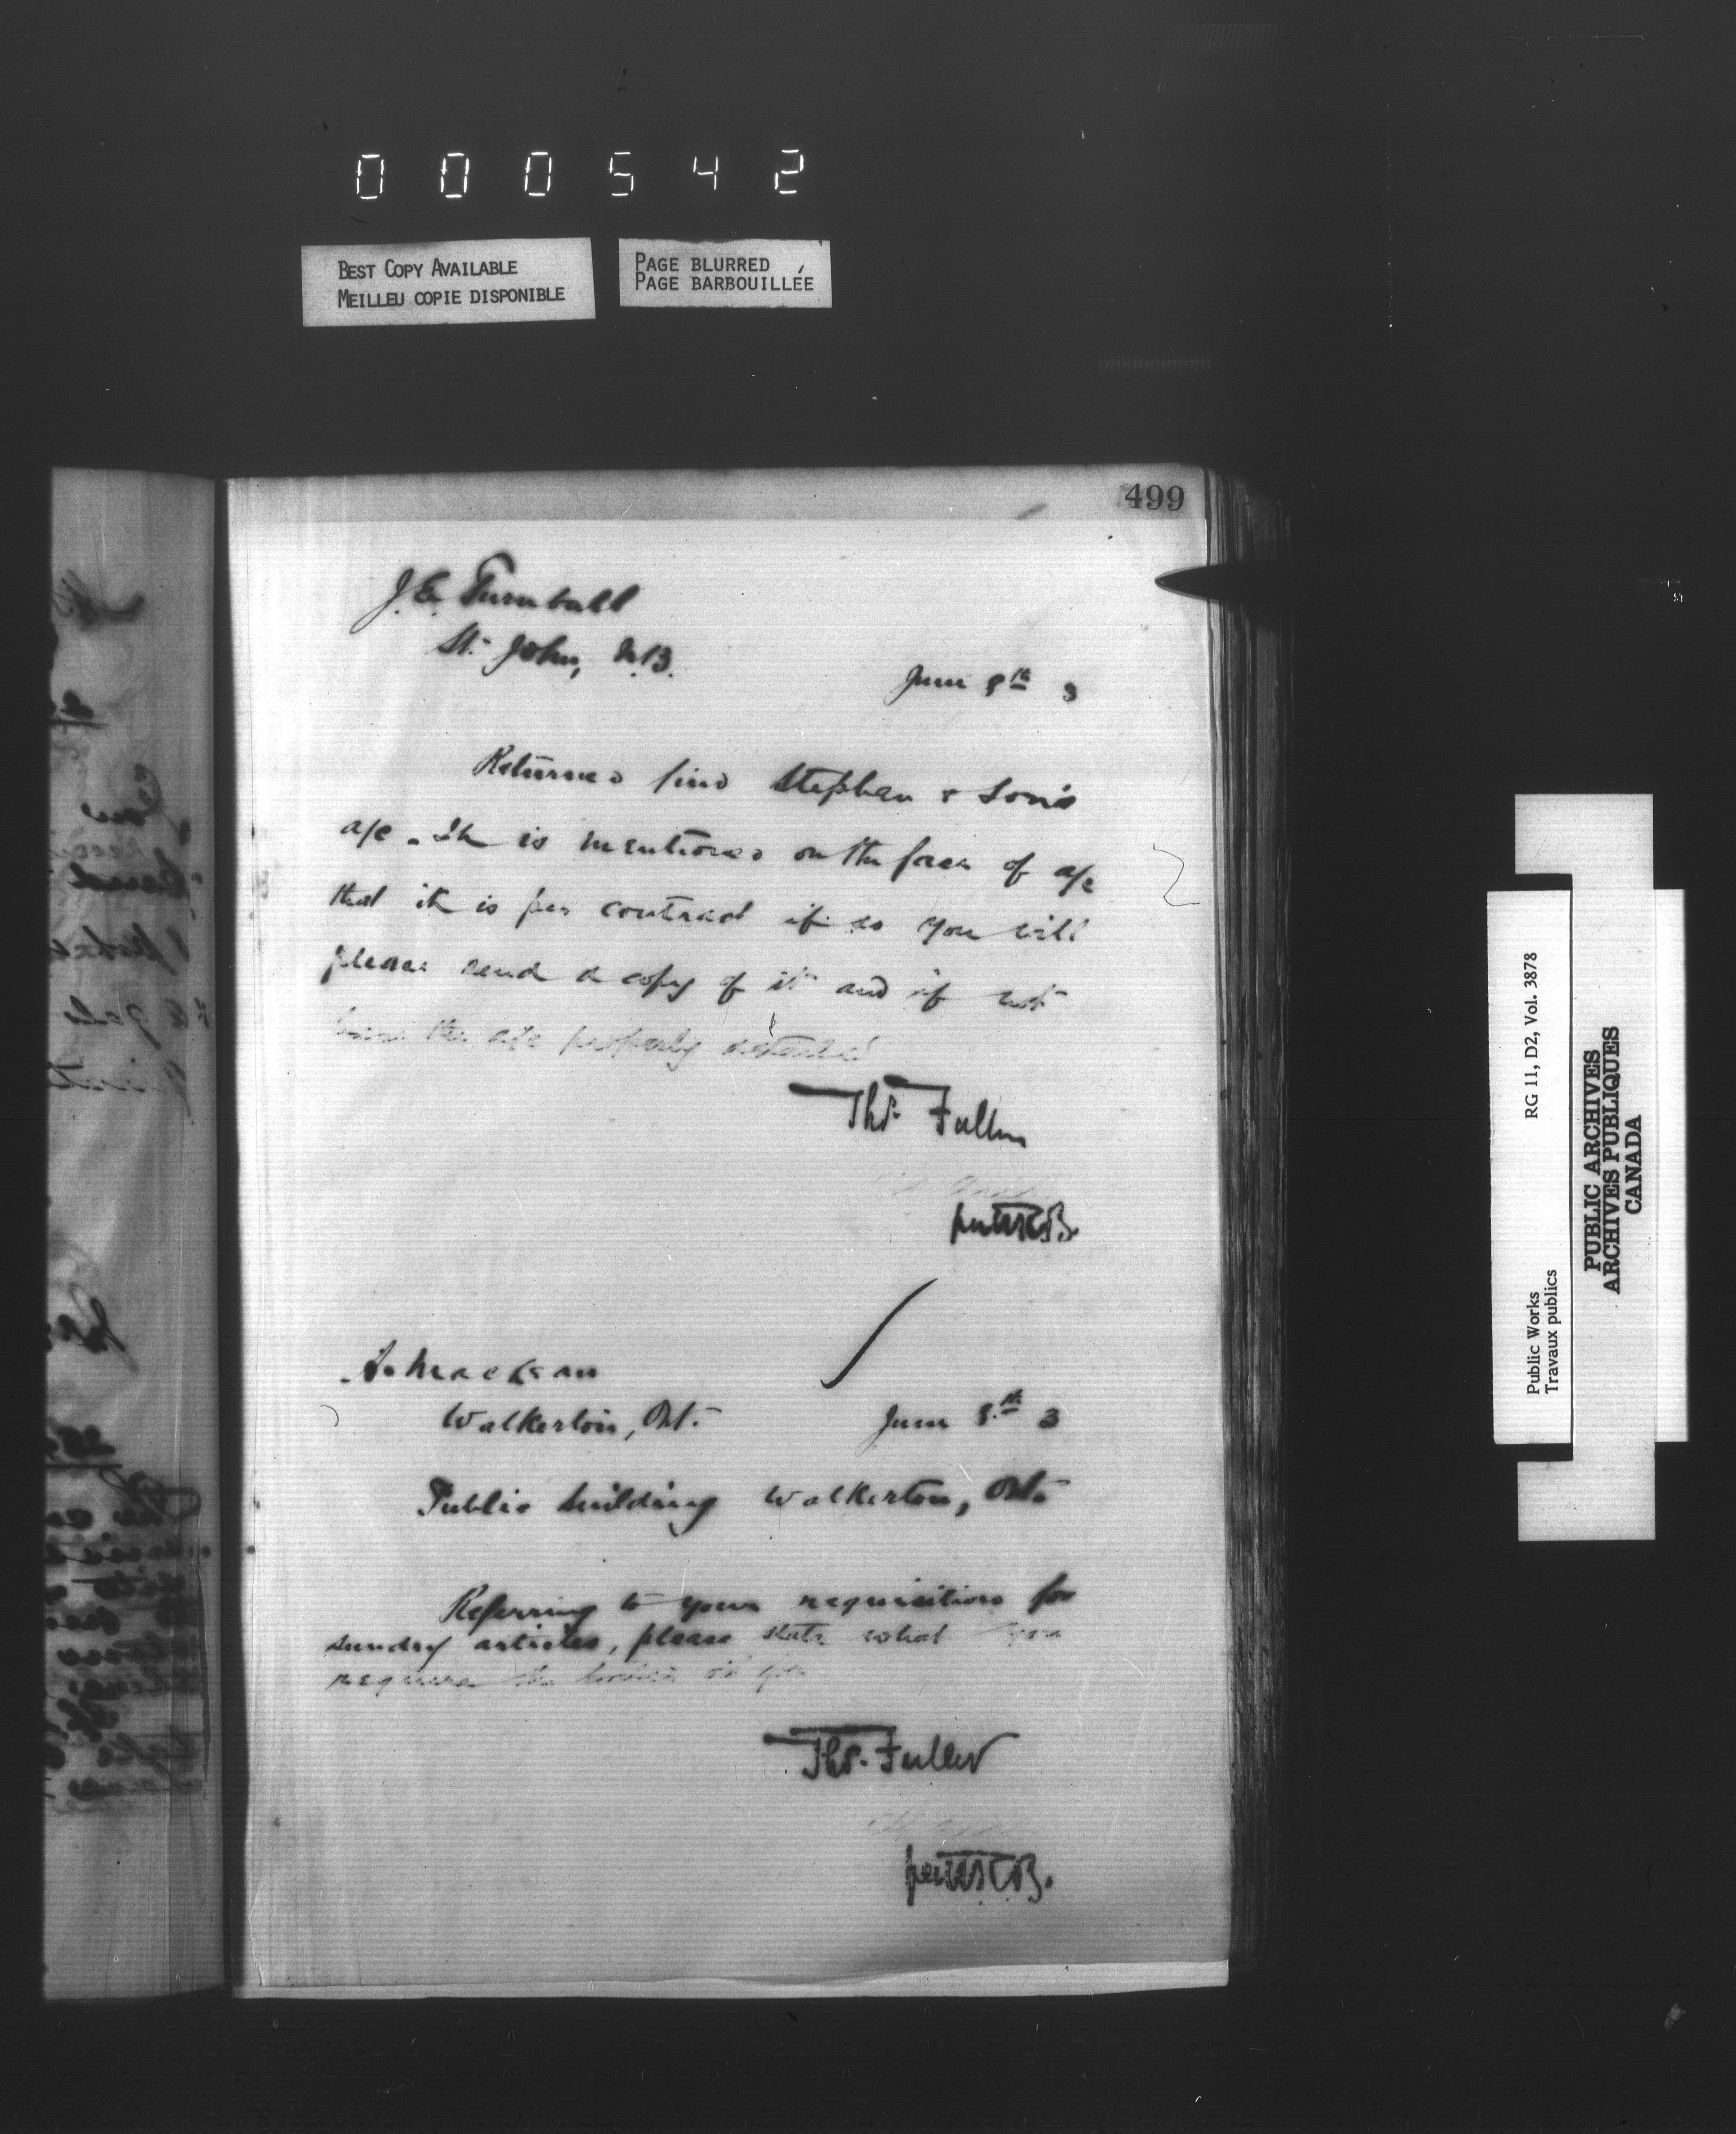 000542
BEST COPY AVAILABLE
MEILLEU COPIE DISPONIBLE
PAGE BLURRED
PAGE BARBOUILLÉE
499
J. E. Turnball
St. John, N.B.
June 8th 3
Returned find Stephen & Son's
a/c. It is mentioned on the face of a/c
that it is per contract if so you will
please send a copy of it and if not
have the a/c properly detailed
Thos. Fuller
Ch. Arch
per
Walkerton, Ont.
June 8th 3
Public building Walkerton, Ont.
Referring to your requisition for
sundry articles, please state what you
require the boiled oil for
Thos. Fuller
Ch. Arch
per
Public Works
Travaux publics
RG 11, D2, Vol. 3878
PUBLIC ARCHIVES
ARCHIVES PUBLIQUES
CANADA